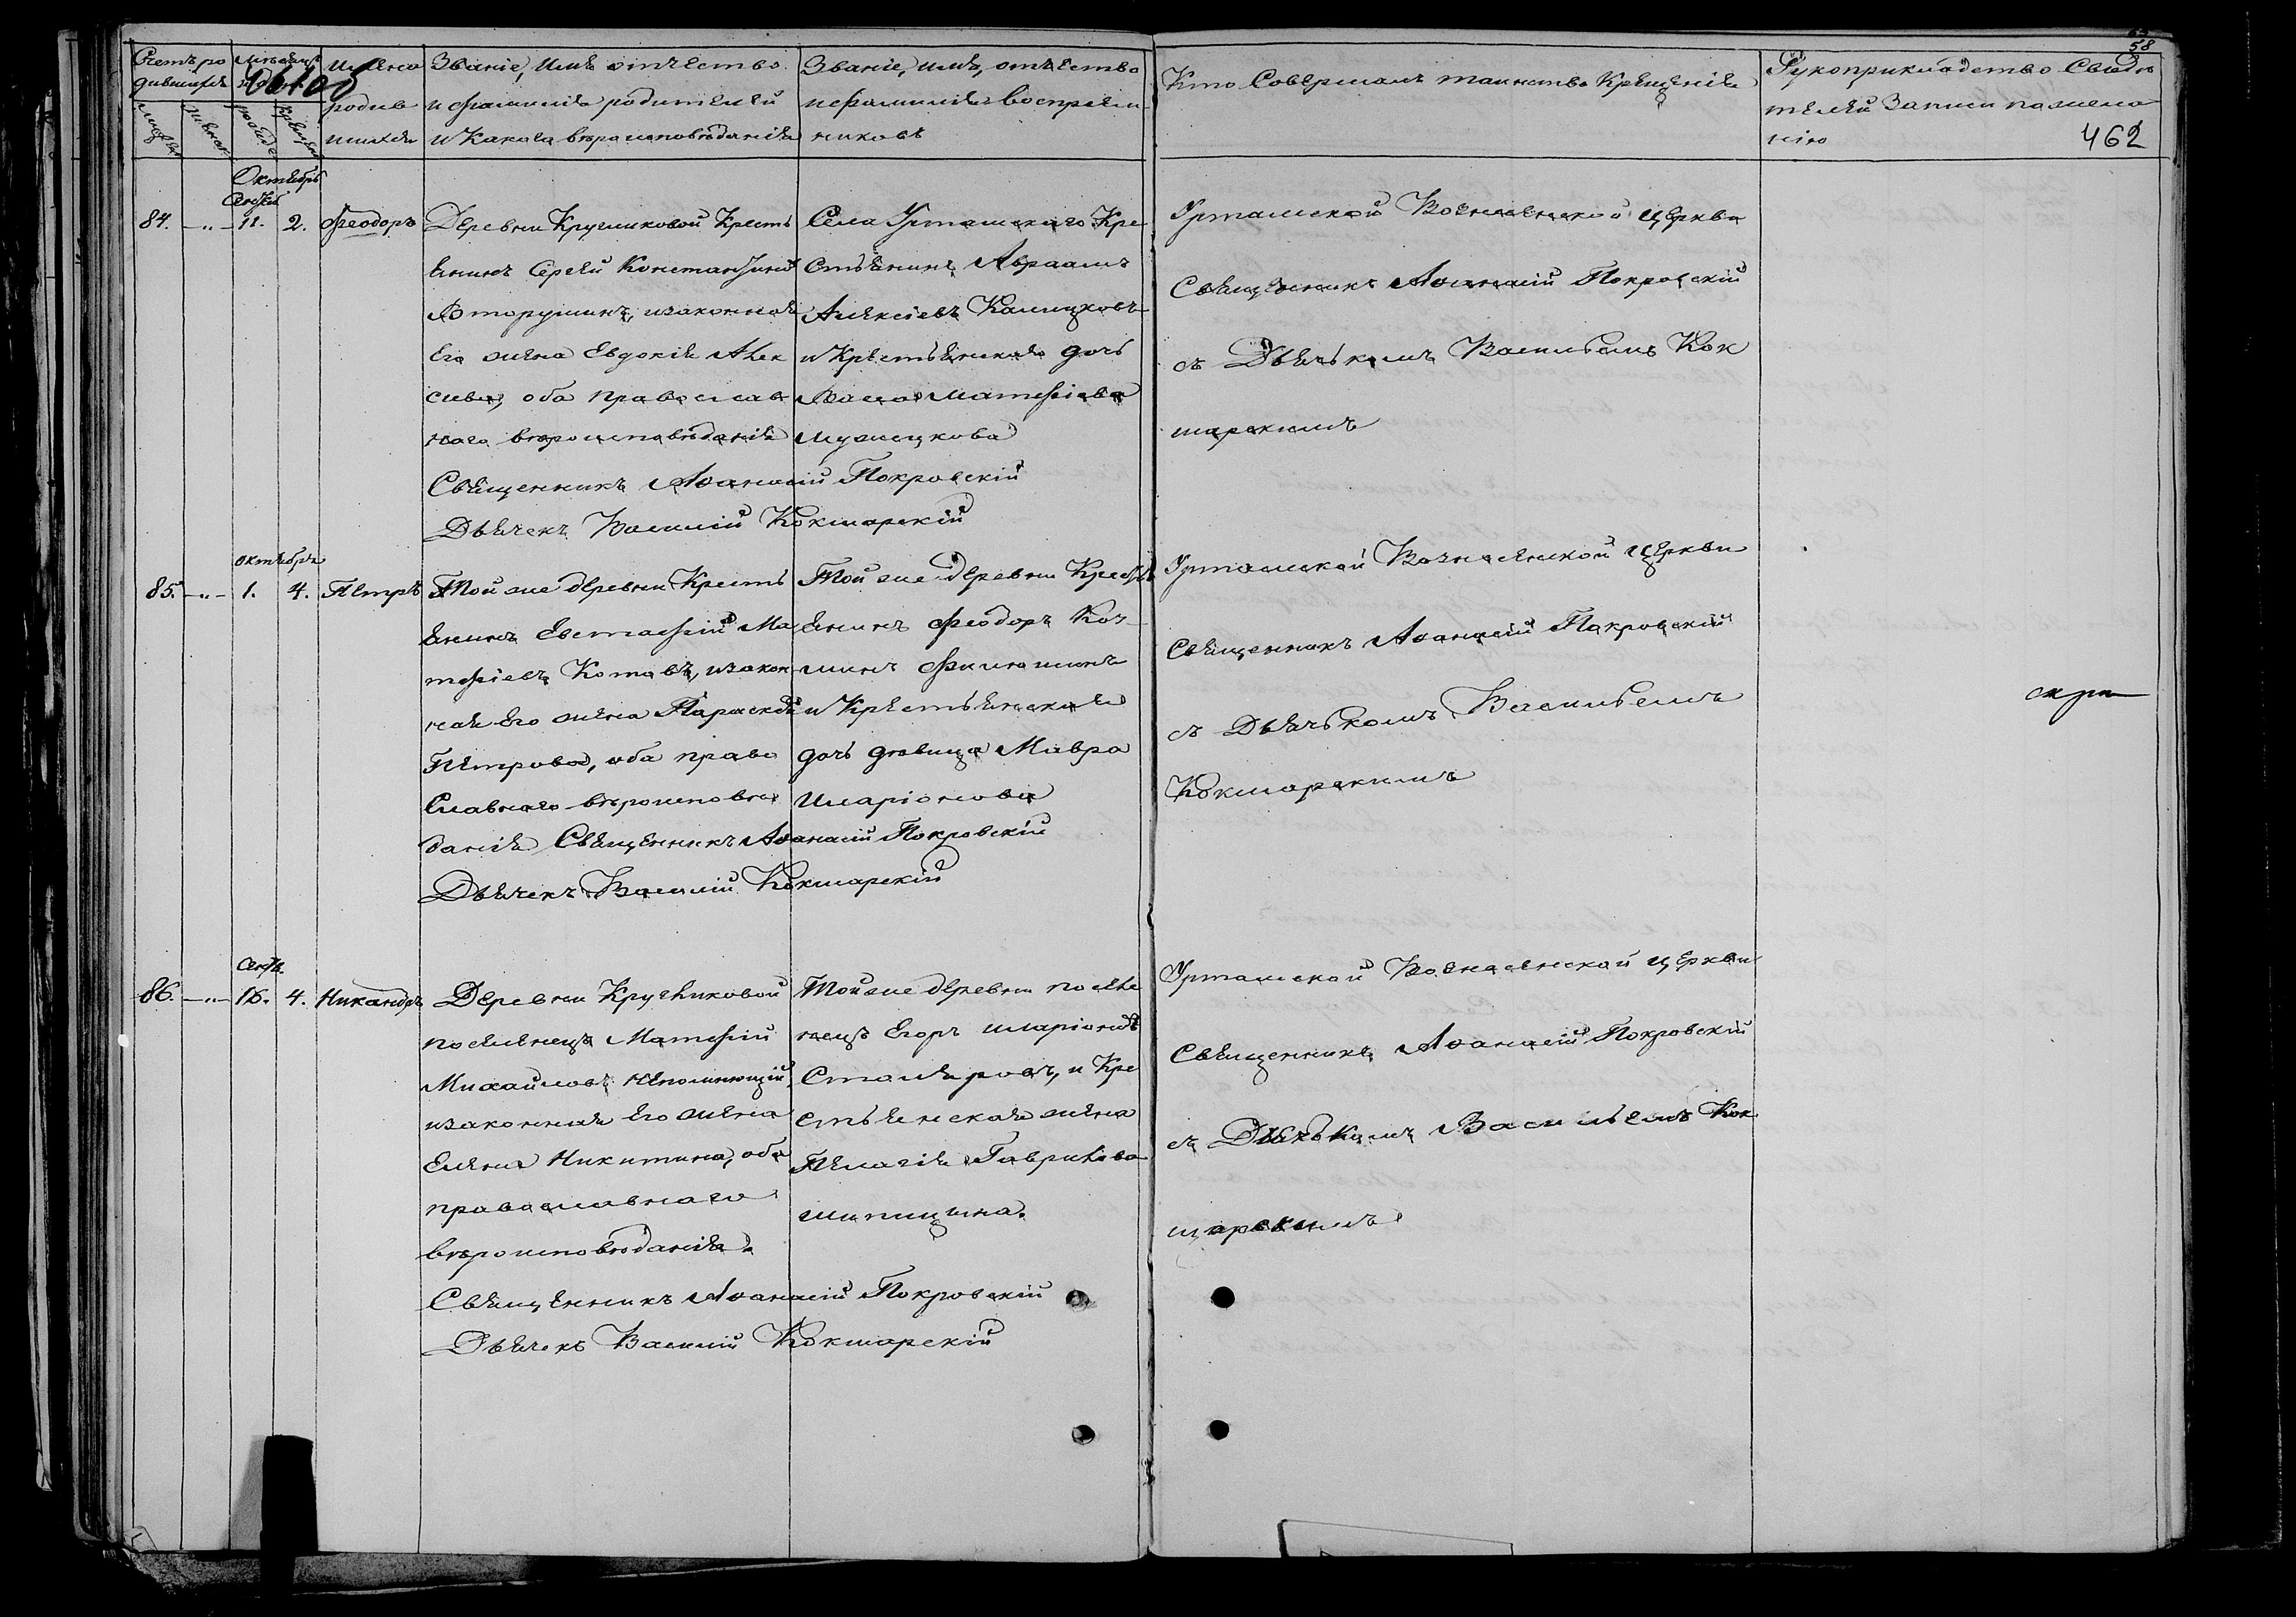 Счетъ ро
дившихся
Мѣсяцъ
имена
родив
шихся
Званіе, имя отчество
и фамилія родителей
и какого вѣроисповѣданія
Званіе, имя, отчество
и фамилія воспреем
никовъ
Кто совершалъ таинство крещенія
Рукоприкладство свидѣ
телей записи по жела
нію
58
462
Октябрь
84. — „ — 11. 2. Феодоръ
Деревни Кругликовой Кресть
янинъ Сергѣй Константиновъ
Вторушинъ, и законная
его жена Евдокія Алек
сиева, оба православ
наго вѣроисповѣданія
Священникъ Аѳанасій Покровскій
Дьячекъ Василій Кокшарскій
Села Уртамскаго Кре
стьянинъ Авраамъ
Алексіевъ Калицковъ
и Крестьянская дочь
Васса Матѳіева
мужицкова
Уртамской Вознесенской церкви
Священникъ Аѳанасій Покровскій
съ Дьячькомъ Васильемъ Кок
шарскимъ
октябрь
85. — „ — 1. 4. Петръ
Той же деревни Кресть
янинъ Евстафій Ма
тѳіевъ Котовъ, и закон
ная его жена Параскева
Петрова, оба право
славнаго вѣроисповѣ
данія Священникъ Аѳанасій Покровскій
Дьячекъ Василій Кокшарскій
Той же деревни Кресть
янинъ Феодоръ Коз
минъ Филюшинъ
и Крестьянская
дочь дѣвица Мавра
Иларіонова
Уртамской Вознесенской церкви
Священникъ Аѳанасій Покровскій
съ Дьячькомъ Васильемъ
Кокшарскимъ
86. — „ — 4. Никандръ
Деревни Кругликовой
поселенецъ Матѳій
Михайловъ Непомнющій,
и законная его жена
Елена Никитина, оба
православнаго
вѣроисповѣданія.
Священникъ Аѳанасій Покровскій
Дьячекъ Василій Кокшарскій
Той же деревни поселе
нецъ Егоръ Иларіоновъ
Столяровъ, и Кре
стьянская жена
Пелагія Гаврилова
шипицина.
Уртамской Вознесенской церкви
Священникъ Аѳанасій Покровскій
съ Дьячькомъ Васильемъ Кок
шарскимъ